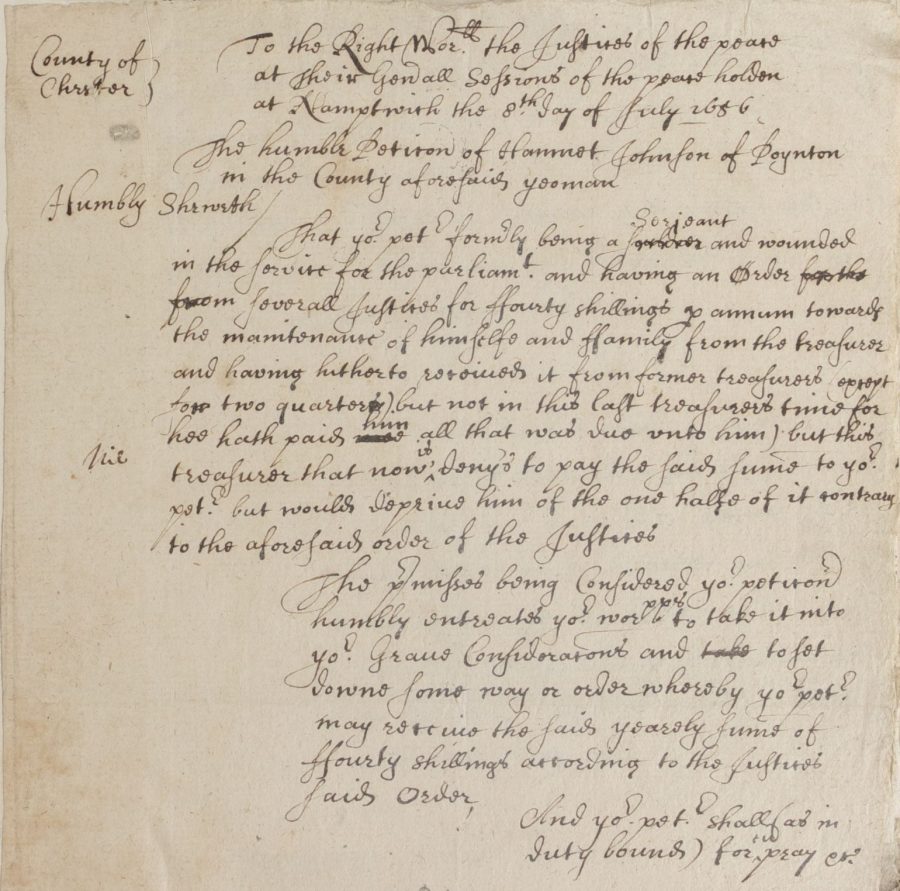 County of
Chester )
To the Right Wor.lls the Justices of the peace
at their Gen̄all Sessions of the peace holden
at Namptwich the 8th. day of July 1656
The humble Peticon of Hammet Johnson of Poynton
in the County aforesaid yeoman
Humbly Sheweth /
That yor. petr. form̄ly being a Serjeant and wounded
in the service for the parliamt. and having an Order for the
from severall Justices for ffourty shillings p annum towards
the maintenance of himselfe and ffamily from the treasurer
and having hitherto received it from former treasurers except
for two quarters) but not in this last treasurers time for
hee hath paid him all that was due vnto him) but this
Nil
treasurer that now is denys to pay the said sum̄e to yor.
petr. but would deprive him of the one halfe of it contrary
to the aforesaid order of the Justices
The p̄misses being Considered yor. peticon̄
humbly entreates yor. worpps to take it into
yor. Graue Consideracons and take to set
downe some way or order whereby yor. petr.
may receiue the said yearely sum̄e of
ffourty shillings according to the Justices
said Order,
And yor. petr. shall (as in
duty bound) for evd pray &c.